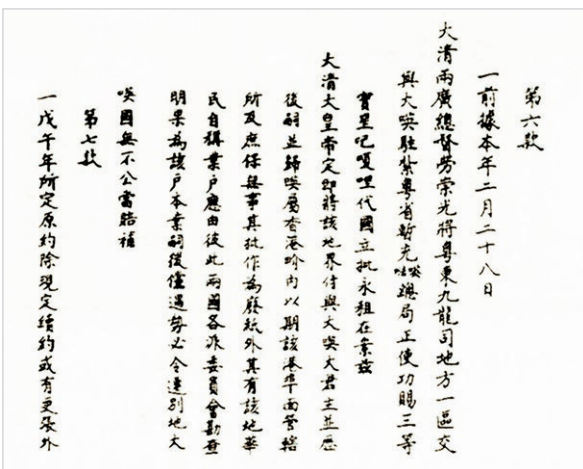 第六款
一前據本年二月二十八日
大清兩廣總督勞崇光將粵東九龍司地方一區交
與大𠸄駐紮粵省暫充𠸄咭總局正使功賜三等
寶星巴嘎哩代國立批永租在案茲
大清大皇帝定即將該地界付與大𠸄大君主並歷
後嗣並歸𠸄屬香港界內以期該港埠面管轄
所及庶保無事其批作為廢紙外其有該地華
民自稱業戶應由彼此兩國各派委員會勘查
明果為該戶本業嗣後倘遇勢必令遷別地大
𠸄國無不公當賠補
第七款
一戊午年所定原約除現定續約或有更張外